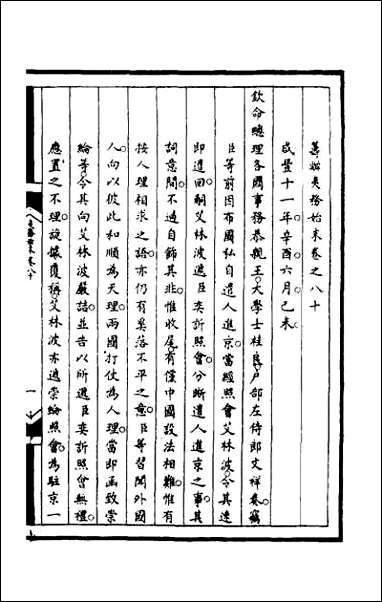 籌辦夷務始末卷之八十
咸豐十一年辛酉六月己未
欽命總理各國事務恭親王大學士桂良戶部左侍郎文祥奏竊
臣等前因布國私自遣人進京當經照會艾林波令其速
即遣回嗣艾林波遞臣奕訢照會分晰遣人進京之事其
詞意間不過自飾其非惟收尾有僅中國設法相難惟有
按人理相求之語亦仍有奚落不平之意臣等習聞外國
人向以彼此和順為天理兩國打仗為人理當即函致崇
綸等令其向艾林波嚴詰並告以所遞臣奕訢照會無禮
應置之不理旋據覆稱艾林波亦遞崇綸照會為駐京一
夷務始末卷八十
一